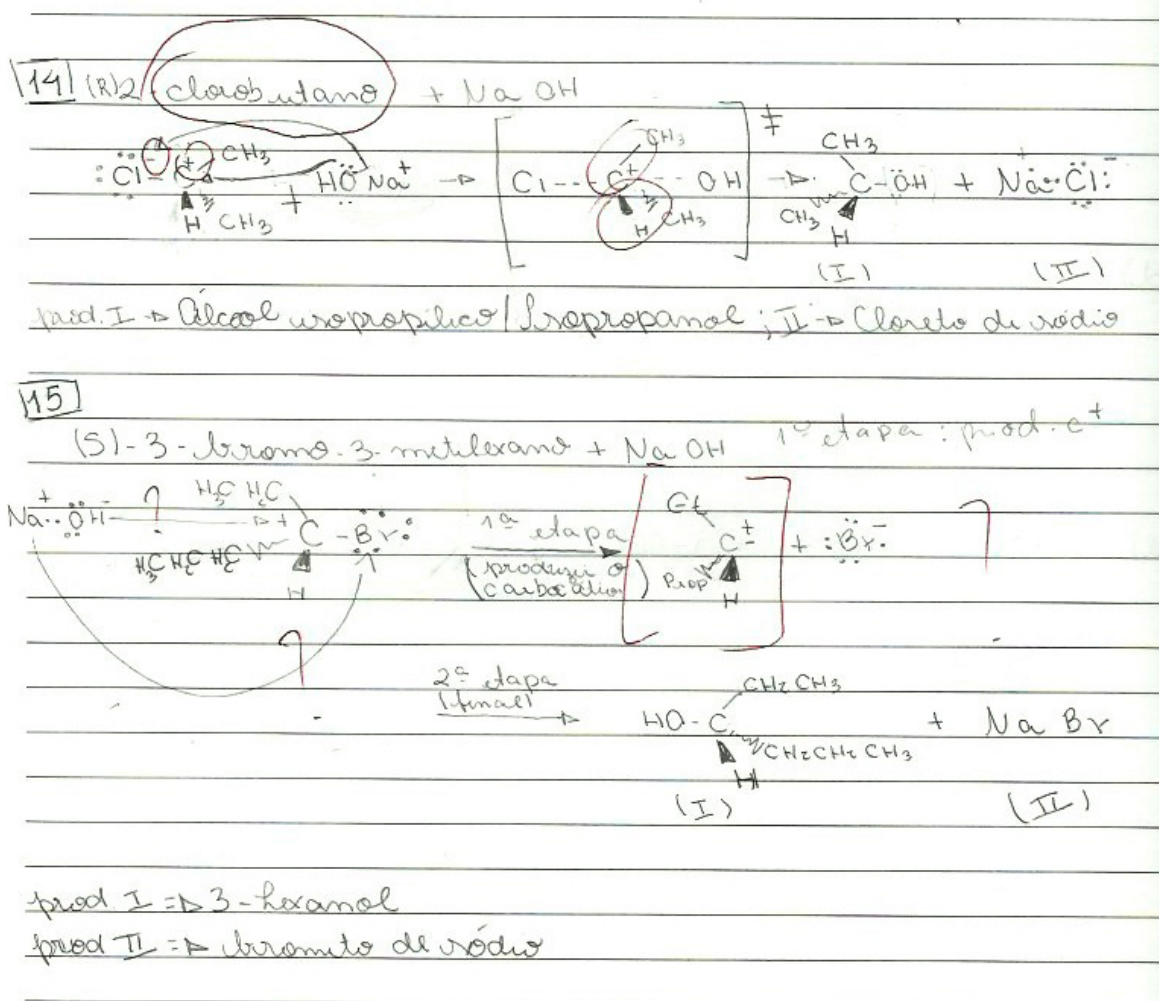 14 (R)2 clorobutano + Na OH
:Cl - C+ CH3 H CH3 + HO Na+ → [Cl -- C+ -- OH CH3 H CH3]‡ → CH3 C - OH CH3 H + Na Cl:
(I) (II)
prod. I → Álcool isopropílico / Isopropanol ; II → Cloreto de sódio
15
(S)-3-bromo-3-metilexano + Na OH 1ª etapa: prod. c+
Na+ OH- ? H3C H2C H3C H2C H2C C - Br: H 1ª etapa (produziu o carbocátion) [Et C+ Prop H] + :Br:- ?
?
2ª etapa (final) HO - C CH2 CH3 CH2CH2 CH3 H + Na Br
(I) (II)
prod. I => 3-hexanol
prod II => brometo de sódio